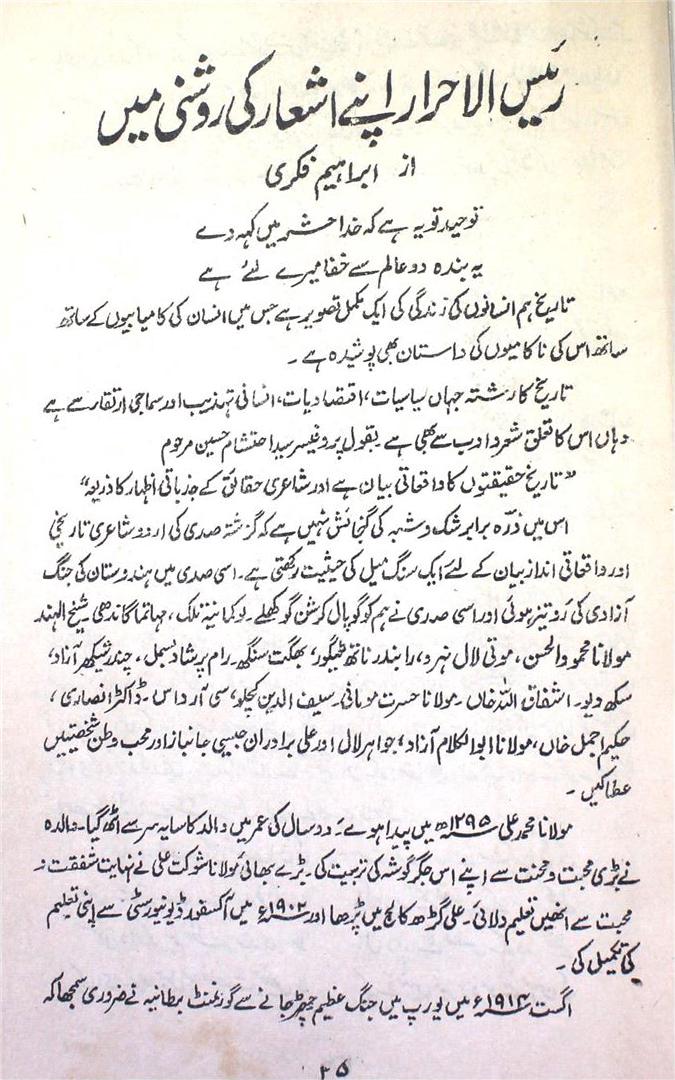 رئیس الاحرار اپنے اشعار کی روشنی میں
از ابراہیم فکری
توحید تو یہ ہے کہ خدا حشر میں کہہ دے
یہ بندہ دو عالم سے خفا میرے لئے ہے
تاریخ ہم انسانوں کی زندگی کی ایک مکمل تصویر ہے جس میں انسان کی کامیابیوں کے ساتھ
ساتھ اس کی ناکامیوں کی داستان بھی پوشیدہ ہے ۔
تاریخ کا رشتہ جہاں سیاسیات، اقتصادیات، انسانی تہذیب اور سماجی ارتقار سے ہے
وہاں اس کا تعلق شعر و ادب سے بھی ہے بقول پروفیسر سید احتشام حسین مرحوم
"تاریخ حقیقتوں کا واقعاتی بیان ہے اور شاعری حقائق کے جذباتی اظہار کا ذریعہ"
اس میں ذرّہ برابر شک و شبہ کی گنجائش نہیں ہے کہ گزشتہ صدی کی اردو شاعری تاریخی
اور واقعاتی انداز بیان کے لئے ایک سنگ میل کی حیثیت رکھتی ہے۔ اسی صدی میں ہندوستان کی جنگ
آزادی کی رَو تیز ہوئی اور اسی صدی نے ہم کو گوپال کرشن گوکھلے۔ لوکمانیہ تلک، مہاتما گاندھی شیخ الہند
مولانا محمود الحسن، موتی لال نہرو، رابندر ناتھ ٹیگور، بھگت سنگھ۔ رام پرشاد بسمل، چندر شیکھر آزاد،
سکھ دیو۔ اشفاق اللہ خاں۔ مولانا حسرت موہانی۔ سیف الدین کچلو، سی آر داس۔ ڈاکٹر انصاری،
حکیم اجمل خاں، مولانا ابوالکلام آزاد، جواہر لال اور علی برادران جیسی جانباز اور محب وطن شخصیتیں
عطا کیں ۔
مولانا محمد علی ۱۲۹۵ھ میں پیدا ہوے۔ دو سال کی عمر میں والد کا سایہ سر سے اٹھ گیا۔ والدہ
نے بڑی محبت و محنت سے اپنے اس جگر گوشہ کی تربیت کی۔ بڑے بھائی مولانا شوکت علی نے نہایت شفقت و
محبت سے انھیں تعلیم دلائی۔ علی گڑھ کالج میں پڑھا اور ۱۹۰۲ء میں آکسفورڈ یونیورسٹی سے اپنی تعلیم
کی تکمیل کی ۔
اگست ۱۹۱۴ء میں یورپ میں جنگ عظیم چھڑ جانے سے گورنمنٹ برطانیہ نے ضروری سمجھا کہ
۳۵